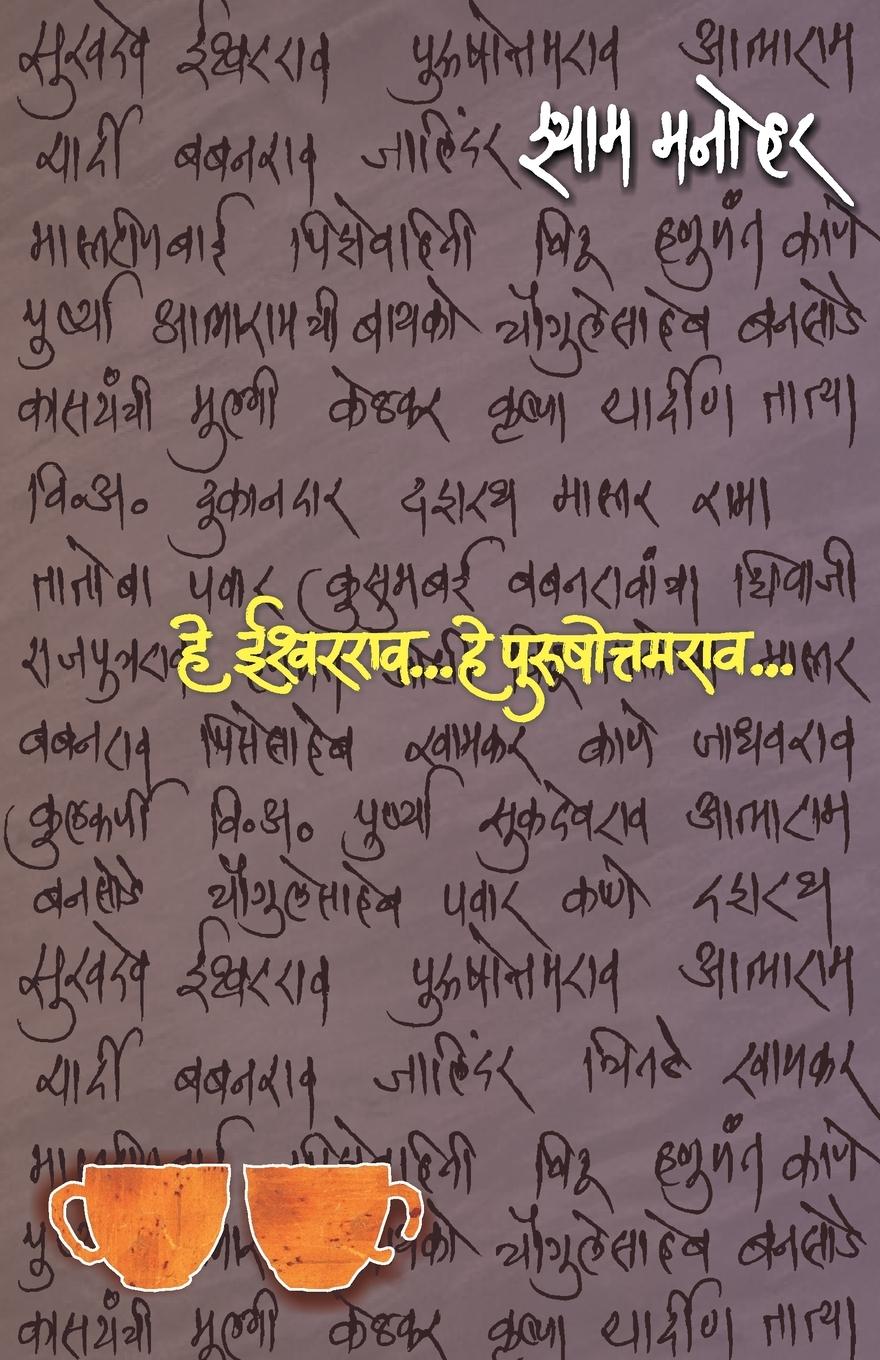 सुखदेव ईश्वरराव पुरूषोत्तमराव आत्माराम
श्याम मनोहर
चार्दी बबनराव जालिंदर
मास्तरीणबाई पिसेवहिनी बिटू हणुमंत काणे
पुर्ष्या आत्मारामची बायको चौगुलेसाहेब बनसोडे
कासयंची मुलगी केळकर कृष्णा चार्दीण तात्या
वि.अ. दुकानदार दशरथ मास्तर रामा
तातोबा पवार कुसुमबाई बबनरावांचा शिवाजी
हे ईश्वरराव...हे पुरुषोत्तमराव...
राजपुत्रराव मास्तर
बबनराव पिसेसाहेब खामकर काणे जाधवराव
कुलकर्णी वि.अ. पुर्ष्या सुकदेवराव आत्माराम
बनसोडे चौगुलेसाहेब पवार काणे दशरथ
सुखदेव ईश्वरराव पुरूषोत्तमराव आत्माराम
चार्दी बबनराव जालिंदर चितळे खामकर
बिटू हणुमंत काणे
चौगुलेसाहेब बनसोडे
कासयंची मुलगी केळकर कृष्णा चार्दीण तात्या